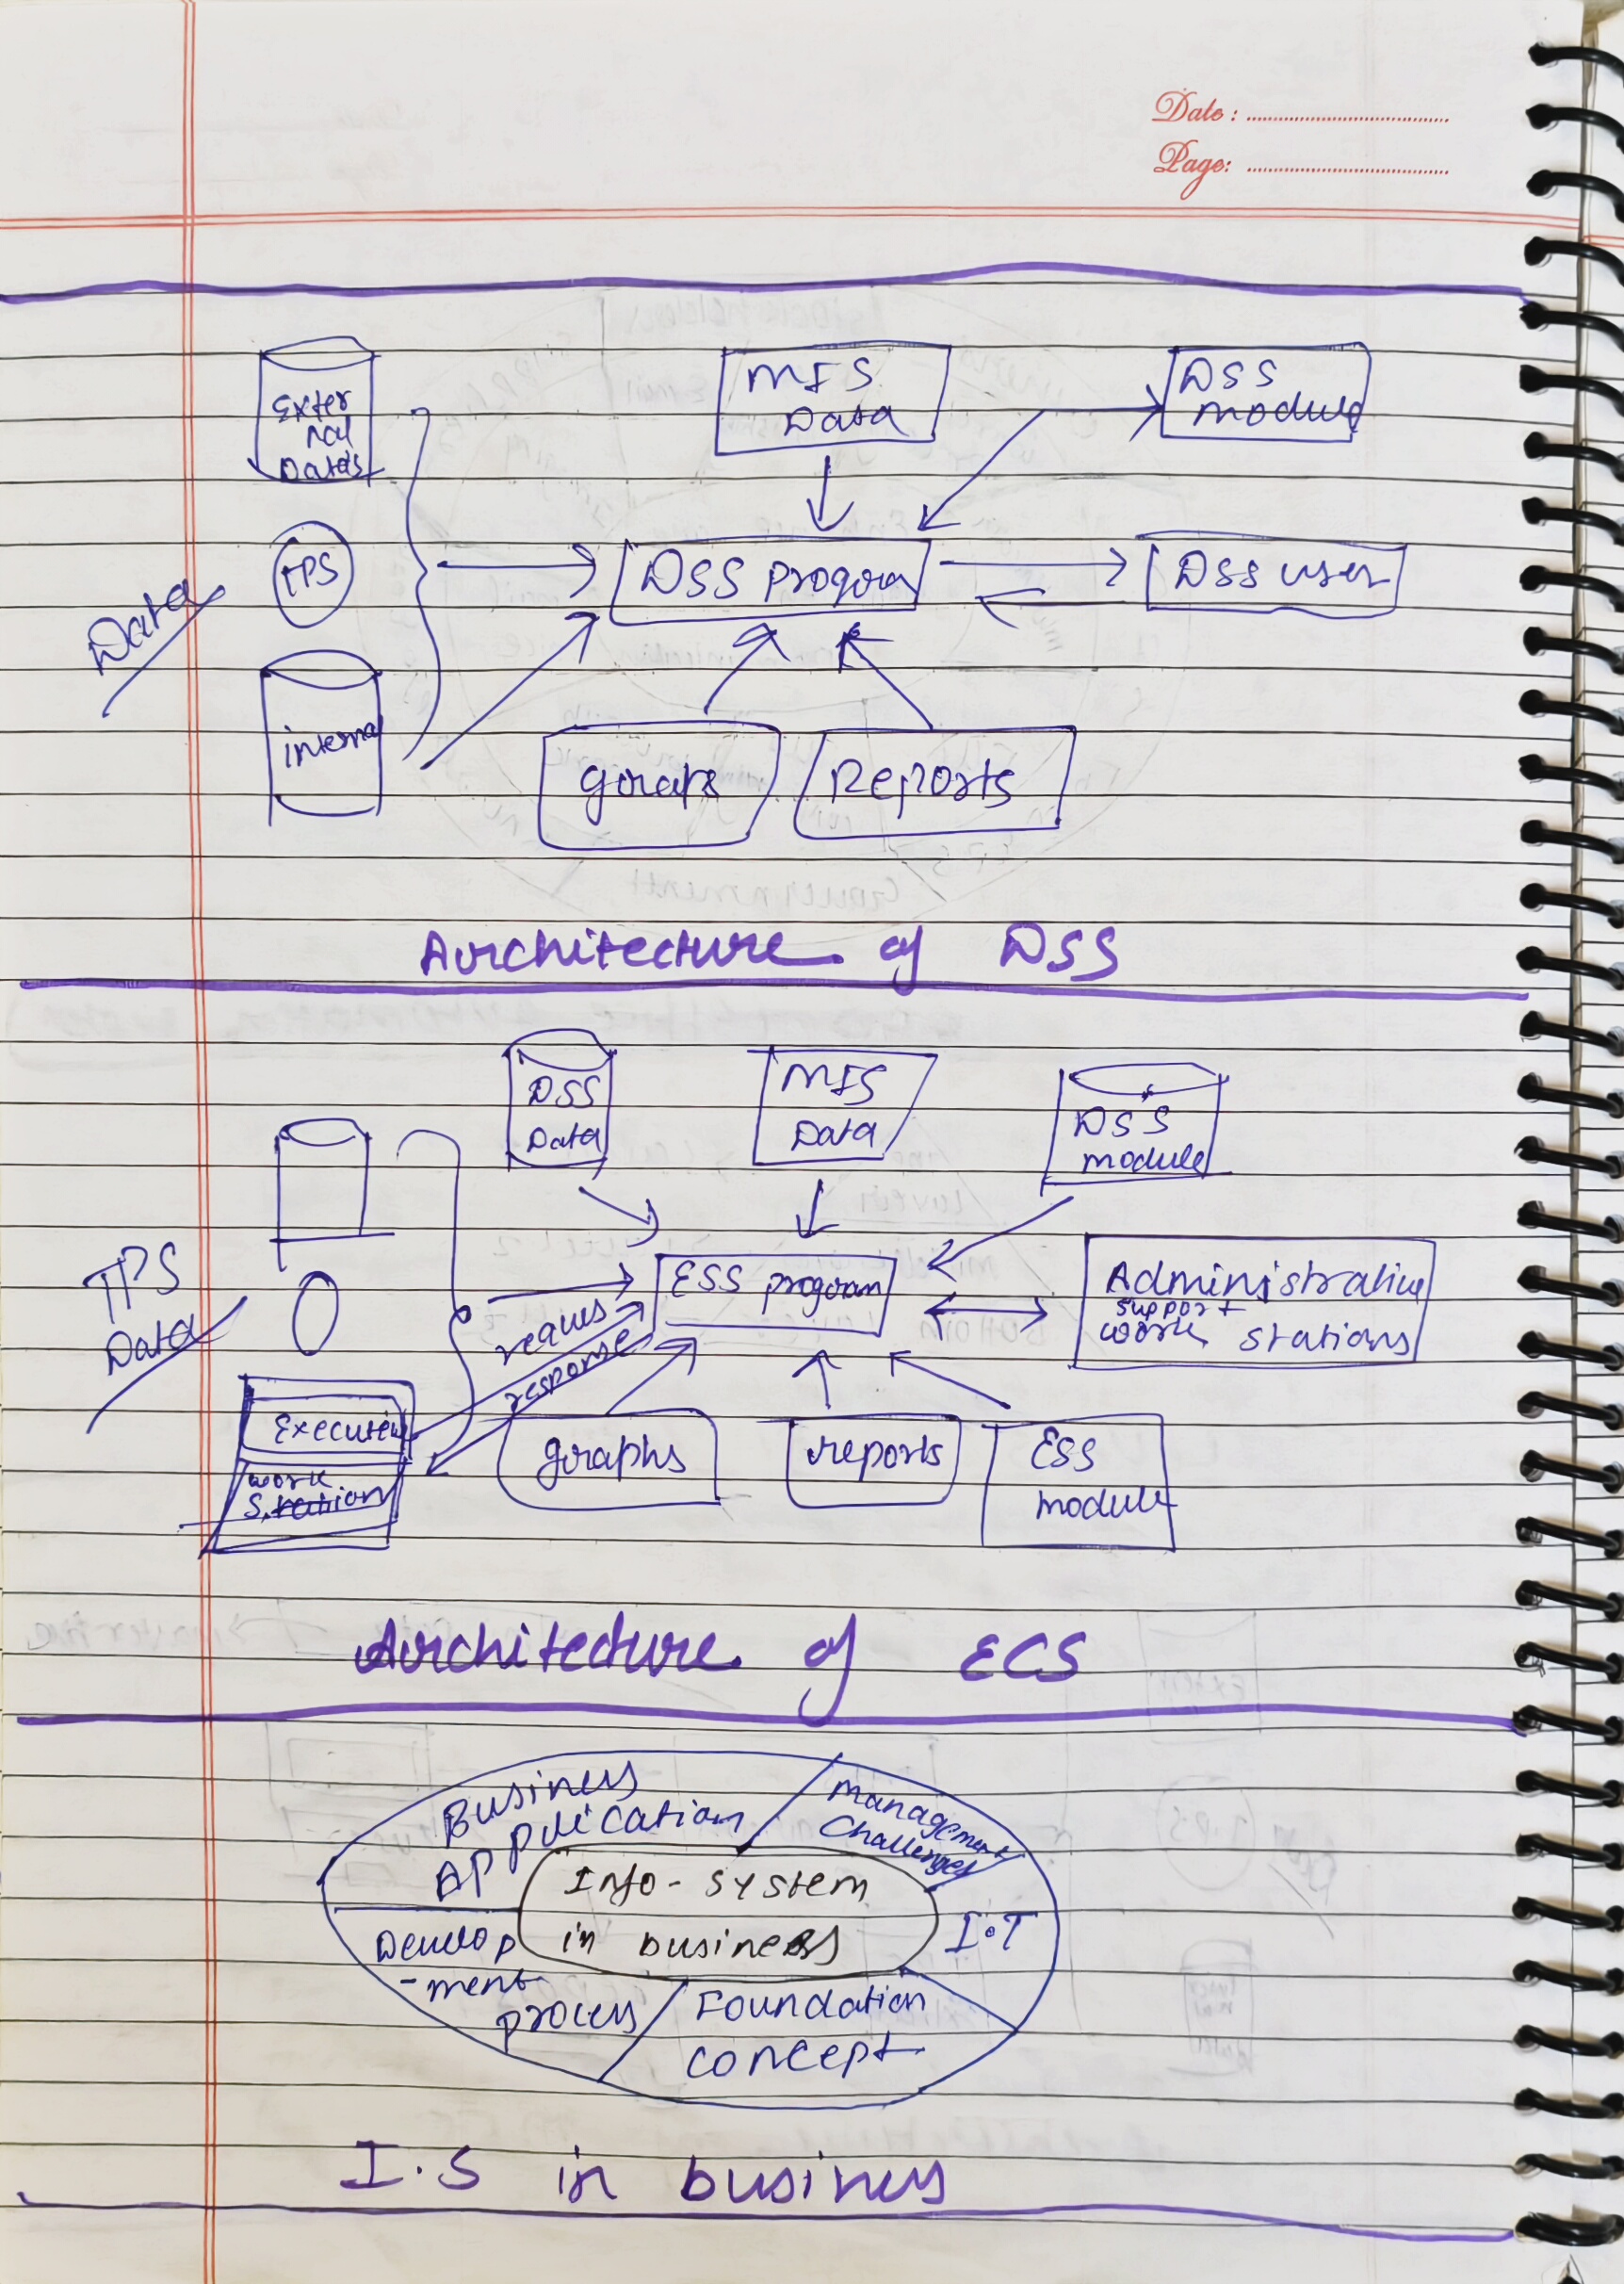 Date :
Page:
Exter
nal
Data's
MIS
Data
DSS
module
Data
TPS
DSS progra
DSS user
internal
graps
Reports
Architecture of DSS
DSS
Data
MIS
Data
DSS
module
TPS
Data
ESS program
Administrative
support
work stations
reques
response
Executive
work
Station
graphs
reports
ESS
module
Architecture of ECS
Business
Application
Management
Challenges
Info-system
in business
I.T
Develop
-ment
process
Foundation
concept
I.S in business